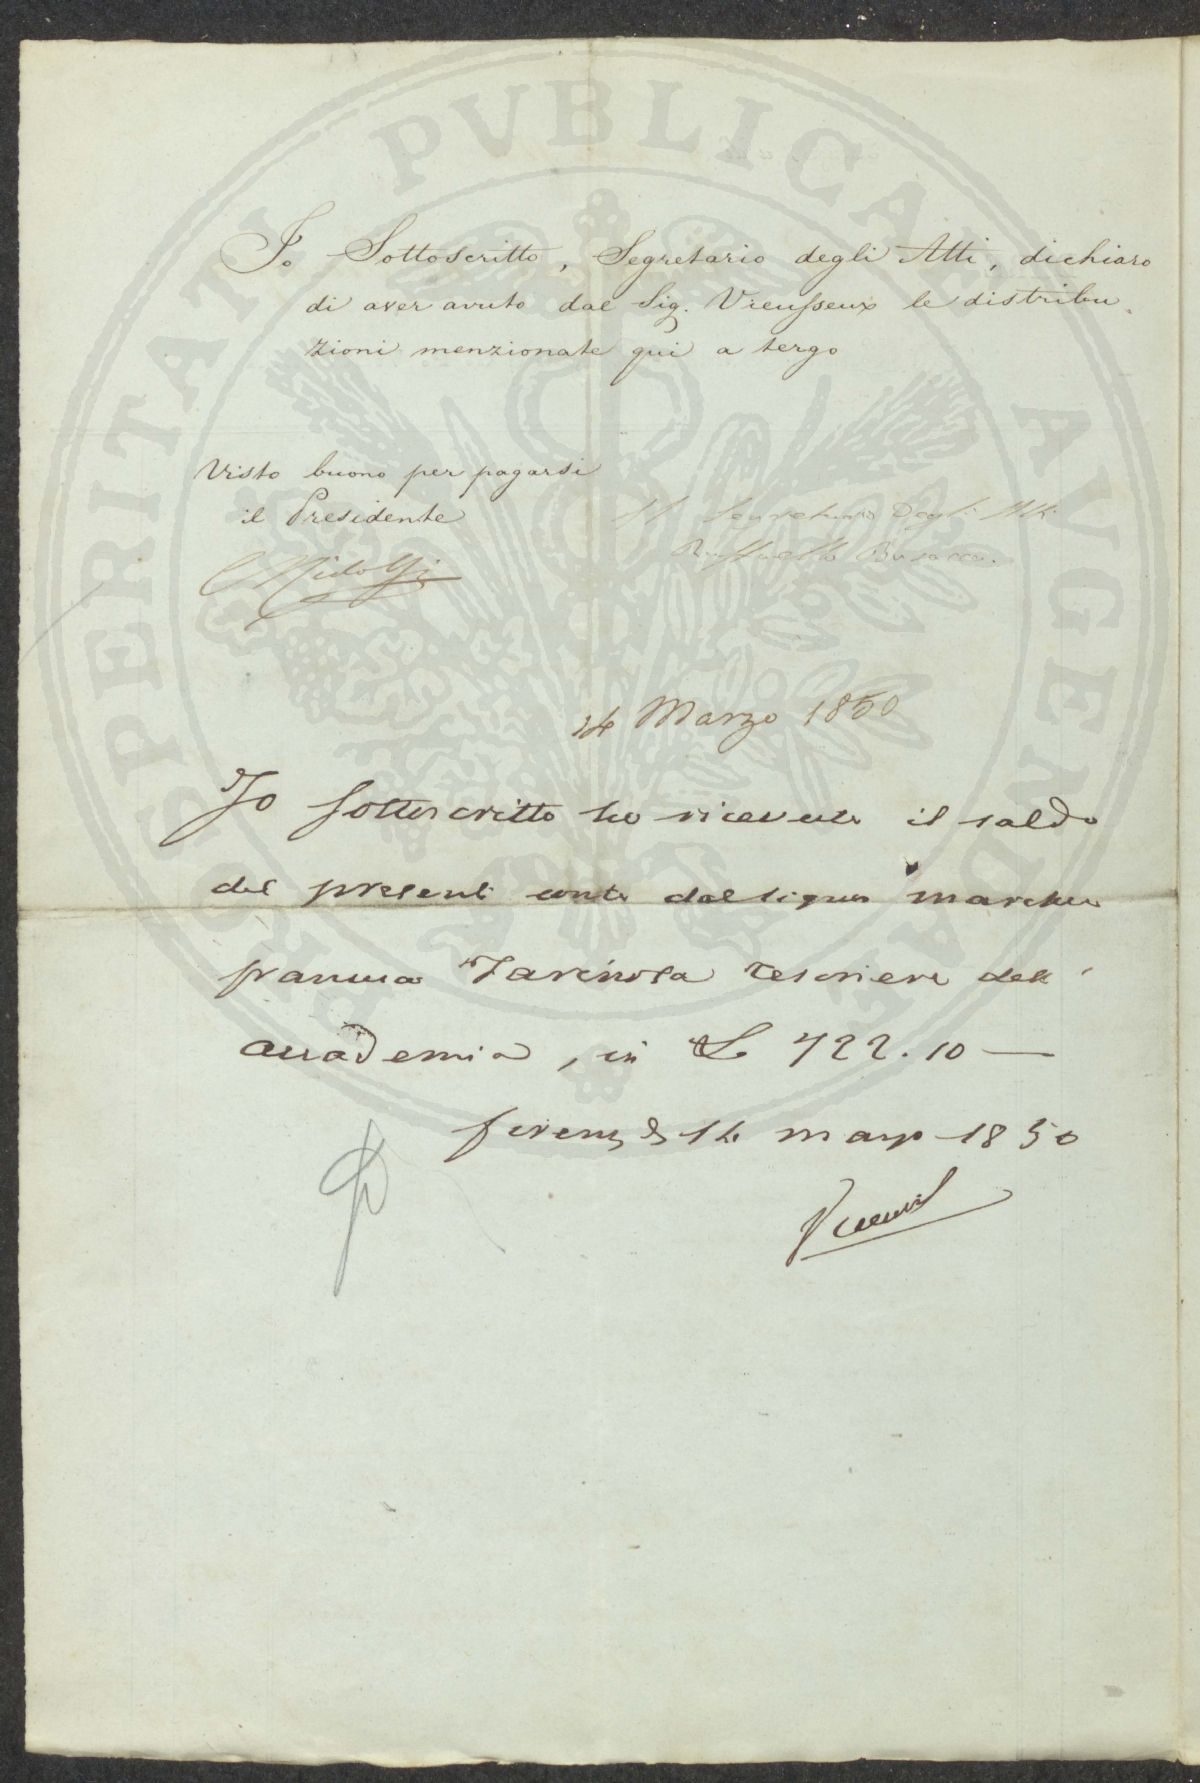 PROSPERITATI PVBLICAE AVGENDAE
Io Sottoscritto, Segretario degli Atti, dichiaro
di aver avuto dal Sig. Vieusseux le distribu
zioni menzionate qui a tergo
Visto buono per pagarsi
il Presidente
Il Segretario Degli Atti
Raffaello Busacca.
C Ridolfi
14 Marzo 1850
Io sottoscritto ho ricevuto il saldo
del presente conto dal signor marchese
tesoriere dell'
accademia, in £ 722.10 —
firenze 14 marzo 1850
Vieusseux